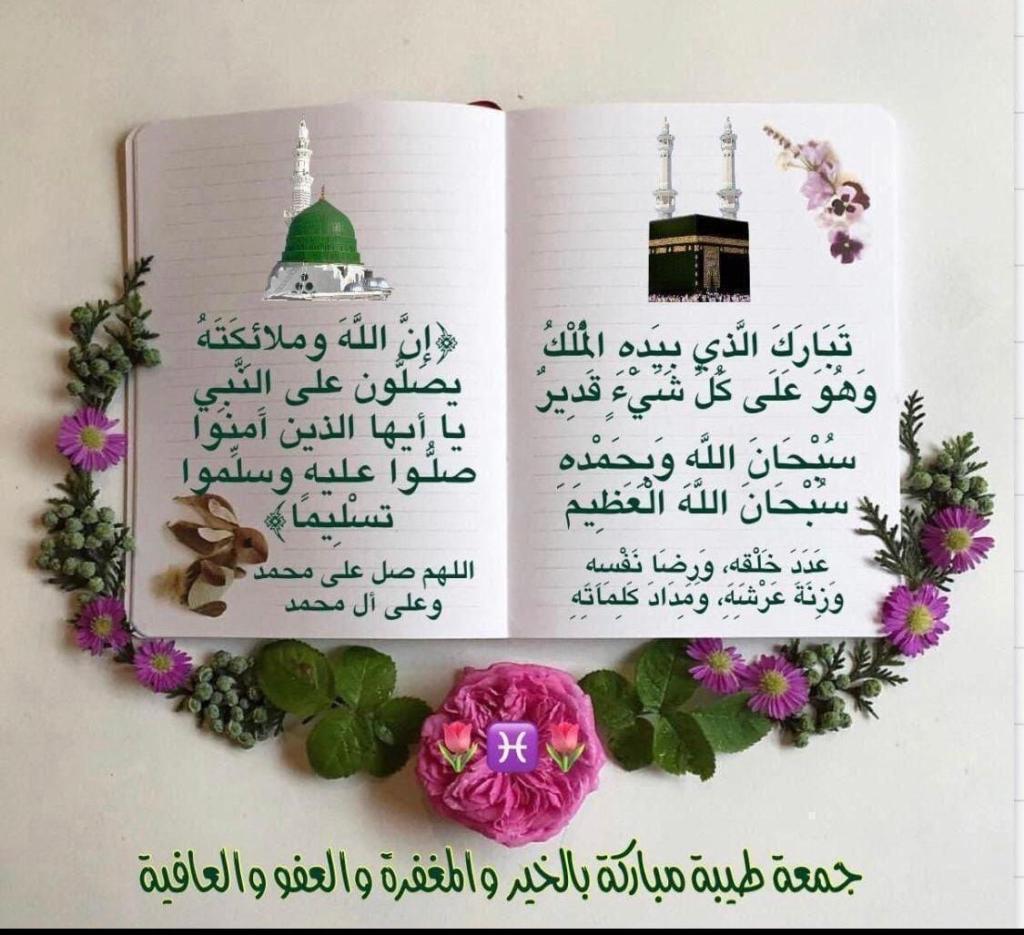 تَبَارَكَ الَّذِي بِيَدِهِ الْمُلْكُ
وَهُوَ عَلَى كُلِّ شَيْءٍ قَدِيرٌ
سُبْحَانَ اللَّهِ وَبِحَمْدِهِ
سُبْحَانَ اللَّهِ الْعَظِيمِ
عَدَدَ خَلْقِهِ، وَرِضَا نَفْسِهِ
وَزِنَةَ عَرْشِهِ، وَمِدَادَ كَلِمَاتِهِ
﴿إِنَّ اللَّهَ وملائكَتَهُ
يصَلُّون على النَّبي
يا أيها الذين آمنَوا
صلُّوا عليهِ وسلِّموا
تسْلِيماً﴾
اللهم صل على محمد
وعلى أل محمد
♓
جمعة طيبة مباركة بالخير والمغفرة والعفو والعافية